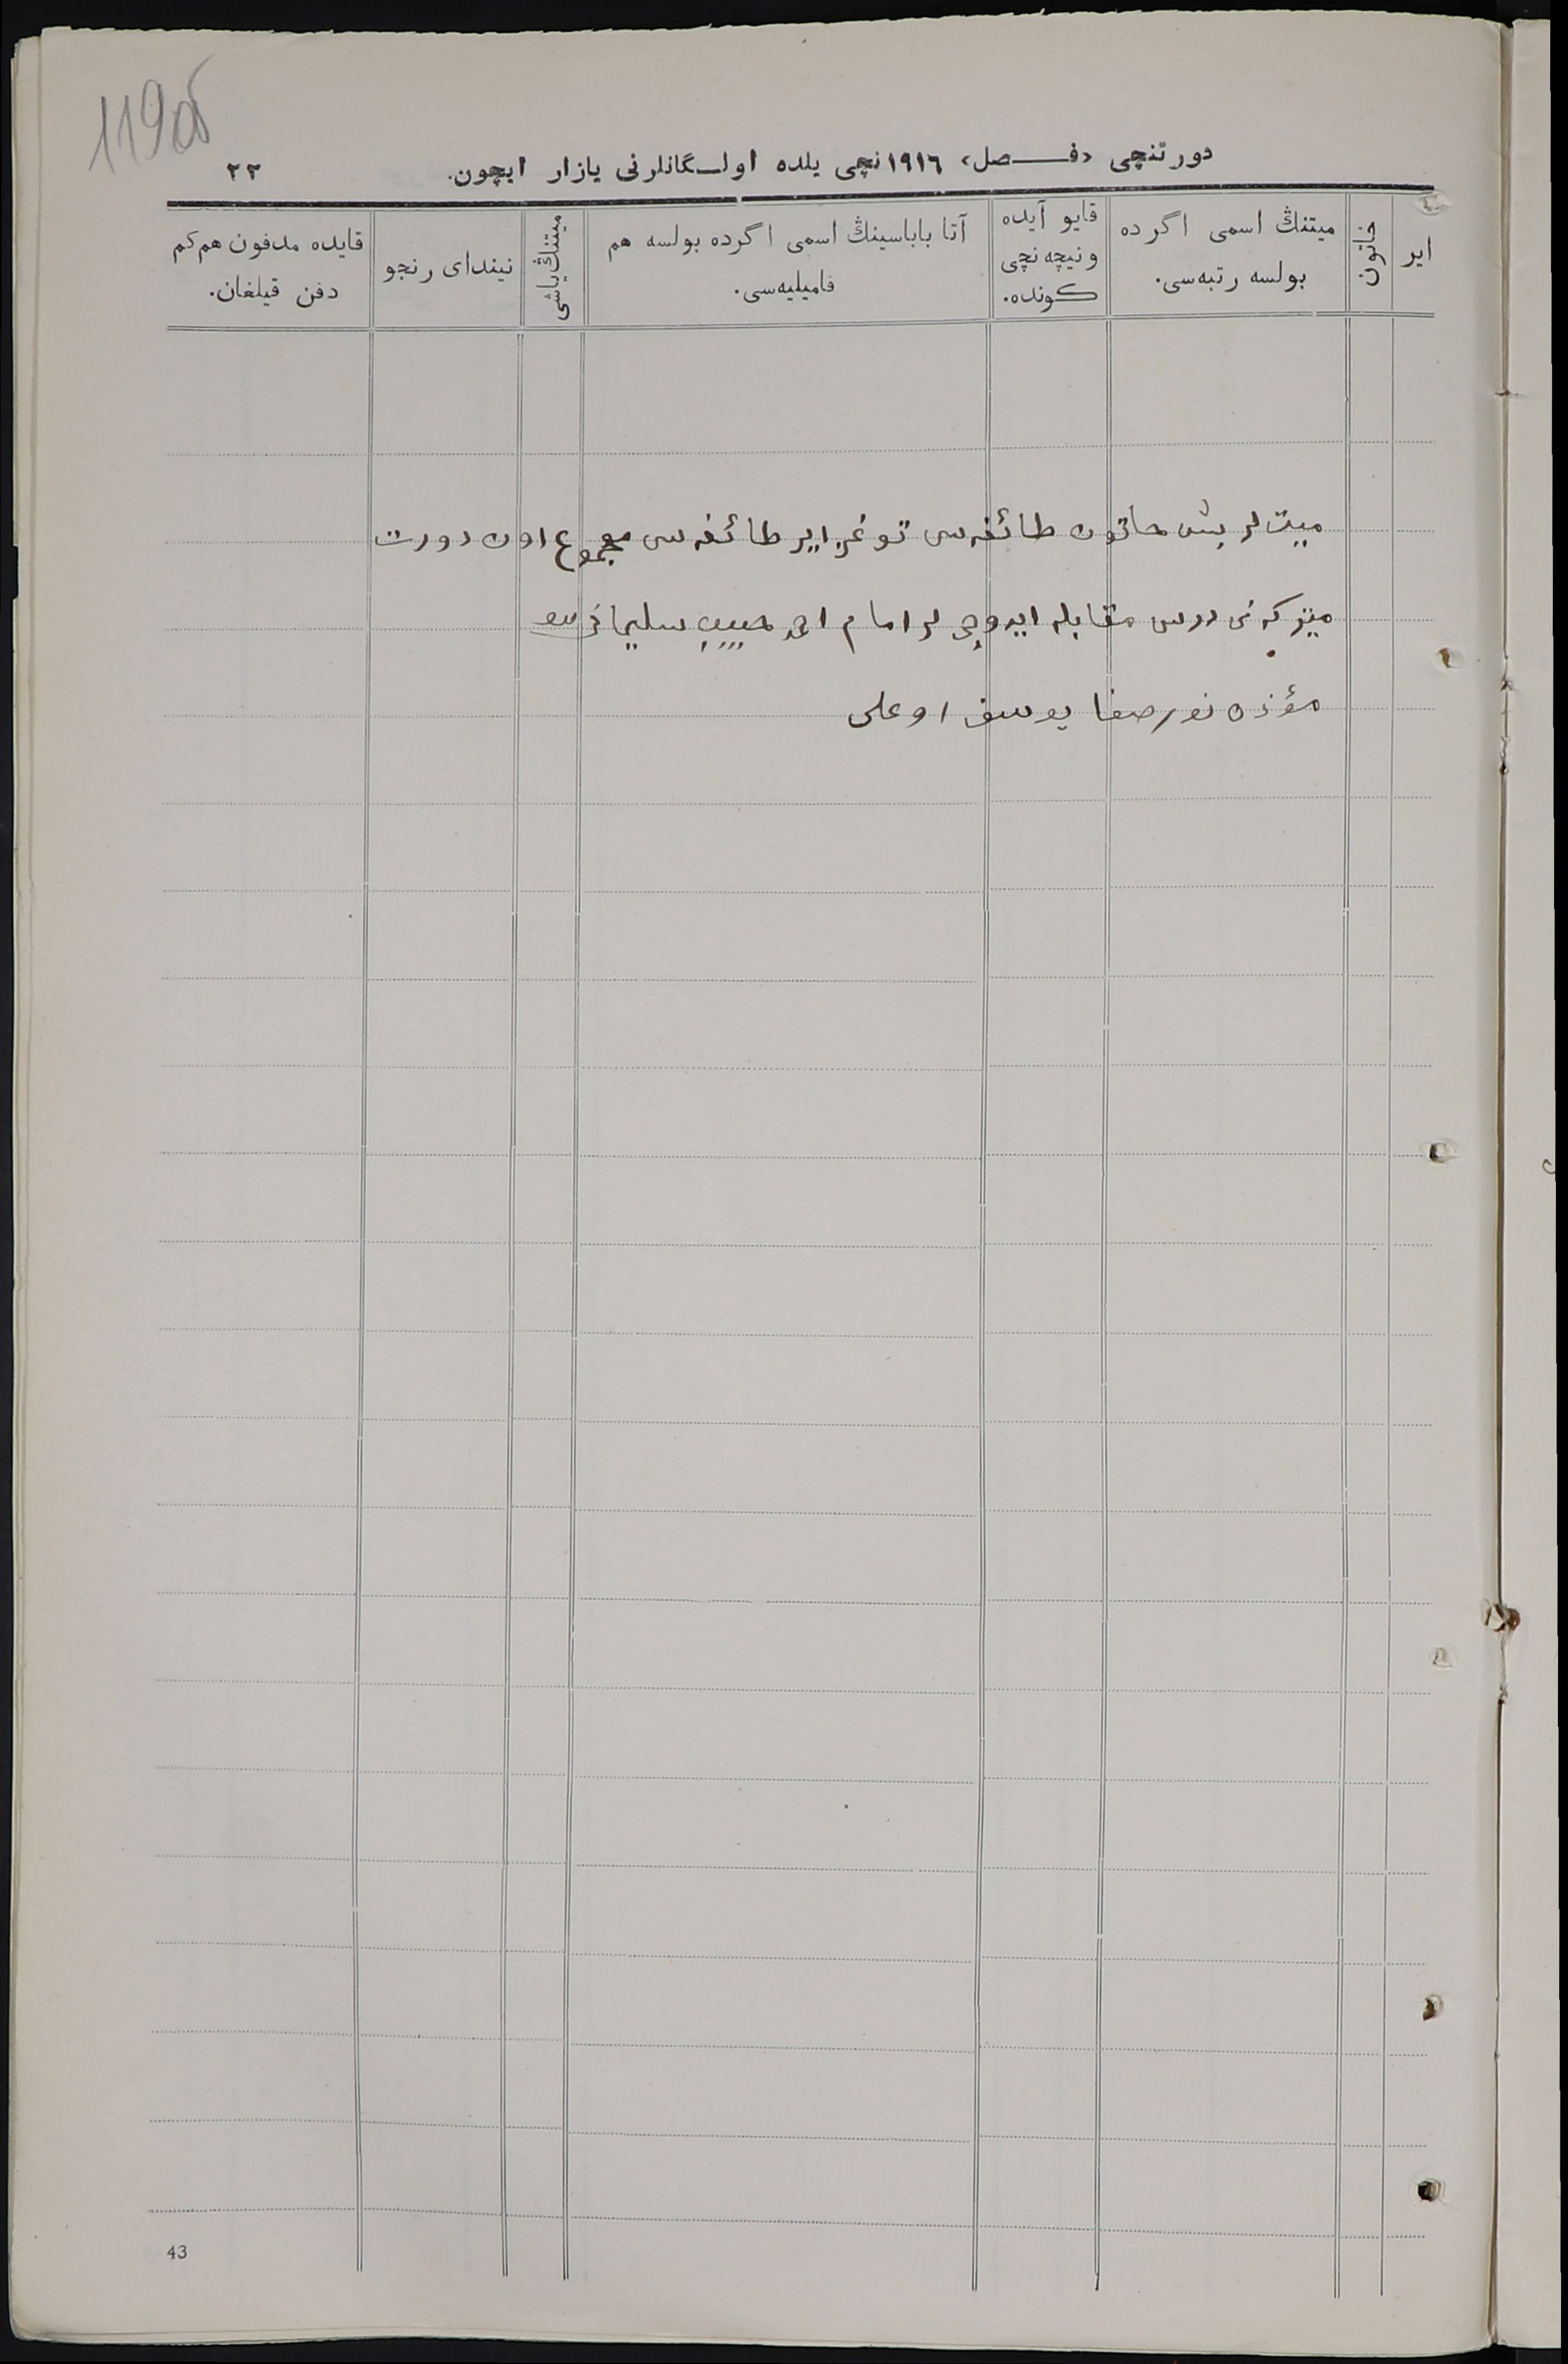 119об
دورتنچی «فصل» ١٩١٦نچی یلده اولگانلرنی یازار ایچون.
٢٢
ایر
خاتون
میتننڭ اسمی اگرده
بولسه رتبه‌سی.
قایو آیده
و نیچه نچی
کونده.
آتا باباسیننڭ اسمی اگرده بولسه هم
فامیلیه‌سی.
میتننڭ یاشی
نیندای رنجو
قایده مدفون هم کم
دفن قیلغان.
میت لر بش خاتون طائفه‌سی توغز ایر طائفه‌سی مجموع اون دورت
مقابله ایدوچی لر امام احمد حبیب سلیمانف
مؤذن نورصفا یوسف اوغلی
43